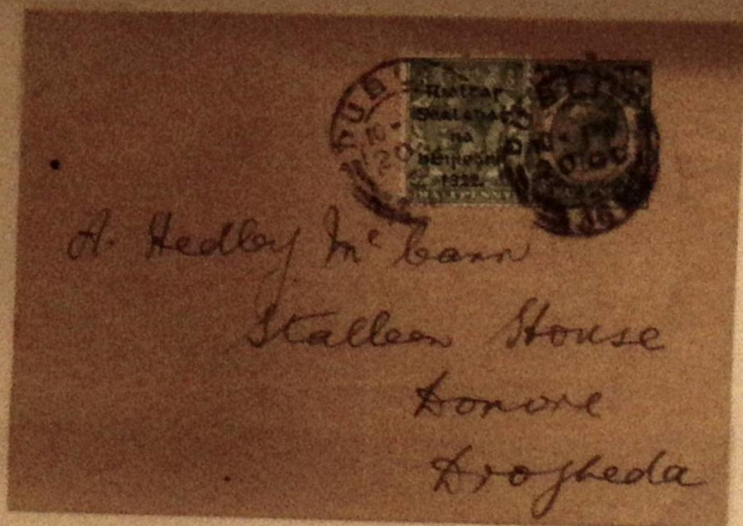 DUBLI
Rialtar
Sealadac
na
hÉireann
1922.
HALFPENNY
A. Hedley Mc Cann
Stalleen House
Donore
Drogheda